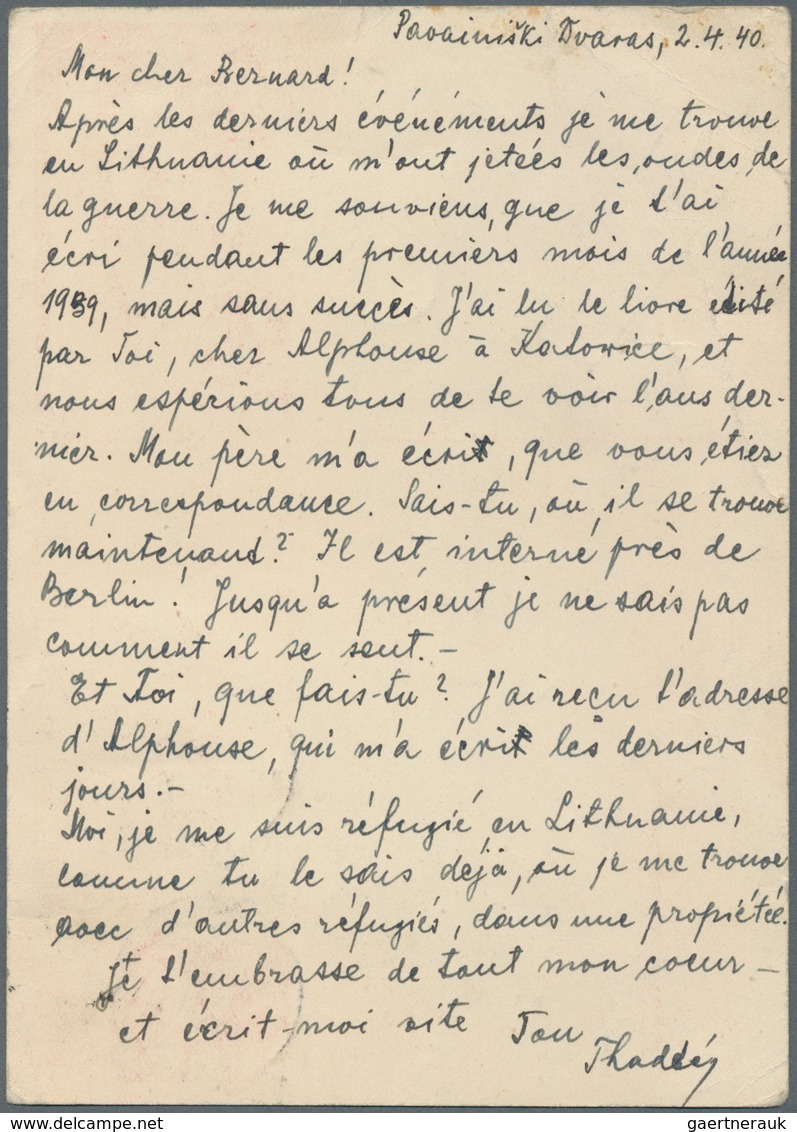 Pavainiški Dvaras, 2.4.40.
Mon cher Bernard!
Après les derniers événéments je me trouve
en Lithuanie où m'ont jetées les ondes de
la guerre. Je me souviens, que je t'ai
écri pendant les premiers mois de l'année
1939, mais sans succès. J'ai lu le livre édité
par Toi, cher Alphonse à Katowice, et
nous espérions tous de te voir l'ans der-
nier. Mon père m'a écrit, que vous étiez
en correspondance. Sais-tu, où il se trouve
maintenant? Il est interné près de
Berlin! Jusqu'à présent je ne sais pas
comment il se sent.-
Et Toi, que fais-tu? J'ai reçu l'adresse
d'Alphonse, qui m'a écrit les derniers
jours.-
Moi, je me suis réfugié en Lithuanie,
comme tu le sais dejà, où je me trouve
avec d'autres réfugiés, dans une propiétée.
Je t'embrasse de tout mon coeur -
et écrit-moi vite Ton
Thaddéy
gaertnerauk